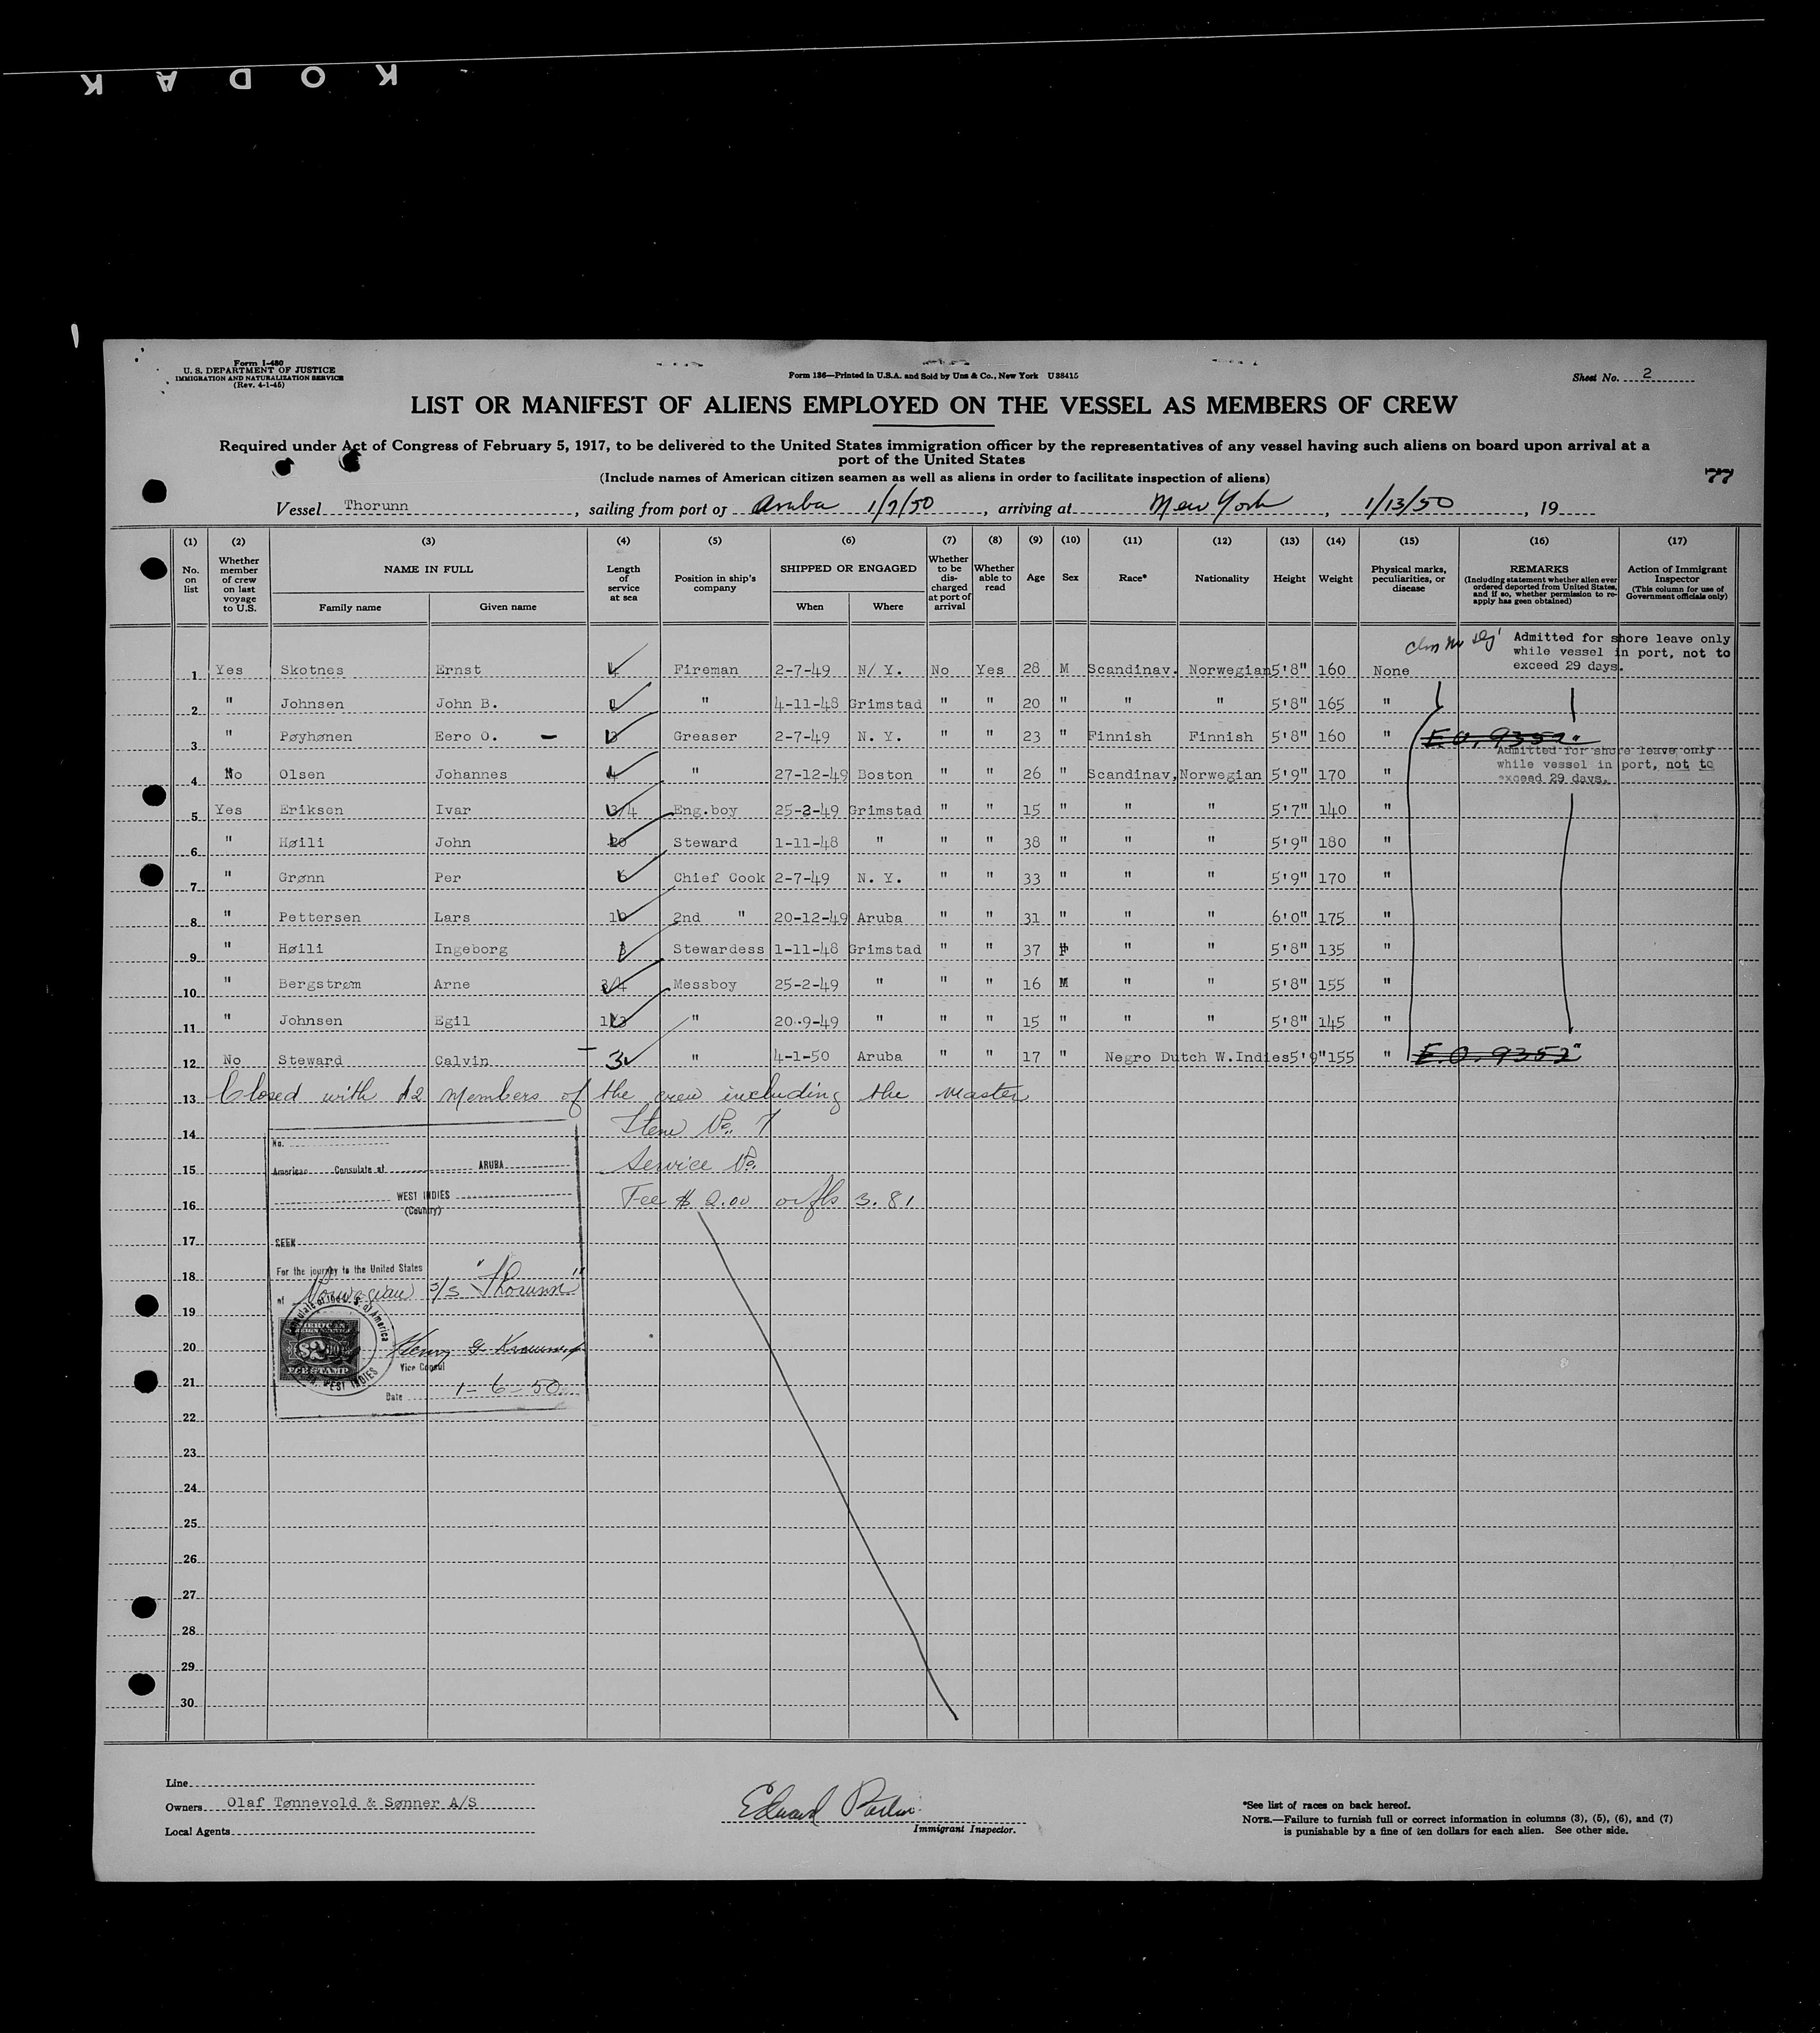 KODAK
Form I-480
U. S. DEPARTMENT OF JUSTICE
IMMIGRATION AND NATURALIZATION SERVICE
(Rev. 4-1-45)
Form 136—Printed in U.S.A. and Sold by Unz & Co., New York U38415
Sheet No. 2
LIST OR MANIFEST OF ALIENS EMPLOYED ON THE VESSEL AS MEMBERS OF CREW
Required under Act of Congress of February 5, 1917, to be delivered to the United States immigration officer by the representatives of any vessel having such aliens on board upon arrival at a
port of the United States
(Include names of American citizen seamen as well as aliens in order to facilitate inspection of aliens)
77
Vessel Thorunn, sailing from port of Aruba 1/7/50, arriving at New York, 1/13/50, 19
(1) (2) (3) (4) (5) (6) (7) (8) (9) (10) (11) (12) (13) (14) (15) (16) (17)
No. on list
Whether member of crew on last voyage to U.S.
NAME IN FULL
Family name
Given name
Length of service at sea
Position in ship's company
SHIPPED OR ENGAGED
When
Where
Whether to be discharged at port of arrival
Whether able to read
Age
Sex
Race*
Nationality
Height
Weight
Physical marks, peculiarities, or disease
REMARKS
(Including statement whether alien ever ordered deported from United States, and if so, whether permission to re-apply has been obtained)
Action of Immigrant Inspector
(This column for use of Government officials only)
Admitted for shore leave only
while vessel in port, not to
exceed 29 days.
1 Yes Skotnes Ernst 4 Fireman 2-7-49 N/ Y. No Yes 28 M Scandinav. Norwegian 5'8" 160 None
2 " Johnsen John B. " 4-11-48 Grimstad " " 20 " " " 5'8" 165 "
3 " Pøyhønen Eero O. — Greaser 2-7-49 N. Y. " " 23 " Finnish Finnish 5'8" 160 " E.O. 9352"
Admitted for shore leave only
while vessel in port, not to
exceed 29 days.
4 No Olsen Johannes 4 " 27-12-49 Boston " " 26 " Scandinav, Norwegian 5'9" 170 "
5 Yes Eriksen Ivar 3/4 Eng.boy 25-2-49 Grimstad " " 15 " " " 5'7" 140 "
6 " Høili John 20 Steward 1-11-48 " " " 38 " " " 5'9" 180 "
7 " Grønn Per 6 Chief Cook 2-7-49 N. Y. " " 33 " " " 5'9" 170 "
8 " Pettersen Lars 10 2nd " 20-12-49 Aruba " " 31 " " " 6'0" 175 "
9 " Høili Ingeborg Stewardess 1-11-48 Grimstad " " 37 " " 5'8" 135 "
10 " Bergstrøm Arne 3/4 Messboy 25-2-49 " " " 16 M " " 5'8" 155 "
11 " Johnsen Egil " 20-9-49 " " " 15 " " " 5'8" 145 "
12 No Steward Calvin 3 " 4-1-50 Aruba " " 17 " Negro Dutch W.Indies 5'9" 155 " E.O. 9352"
13 Closed with 12 members of the crew including the master
14 Item No. 7
15 Service No.
16 Fee $ 2.00 or fls 3.81
17
18
19
20
21
22
23
24
25
26
27
28
29
30
No.
American Consulate at ARUBA
WEST INDIES
(Country)
SEEN
For the journey to the United States
of Norwegian S/S "Thorunn"
Consulate of the U. S. of America
WEST INDIES
AMERICAN
$2
FEE STAMP
Henry G.
Vice Consul
Date 1-6-50
Line
Owners Olaf Tønnevold & Sønner A/S
Local Agents
Edward
Immigrant Inspector.
*See list of races on back hereof.
NOTE.—Failure to furnish full or correct information in columns (3), (5), (6), and (7)
is punishable by a fine of ten dollars for each alien. See other side.